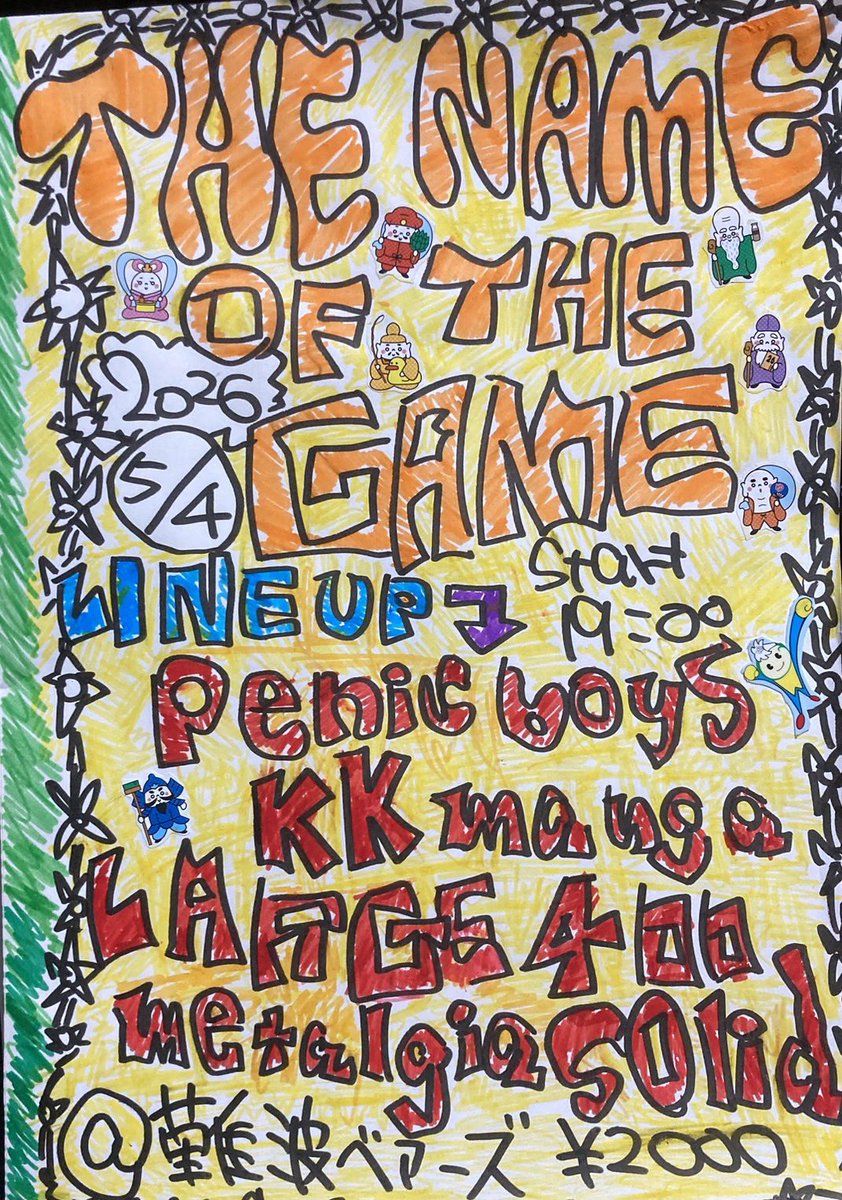 THE NAME
OF THE
2026
5/4
GAME
LINE UP
Start
19:00
Penic boys
KK manga
LARGE 400
metalgia SOlid
@難波ベアーズ ¥2000